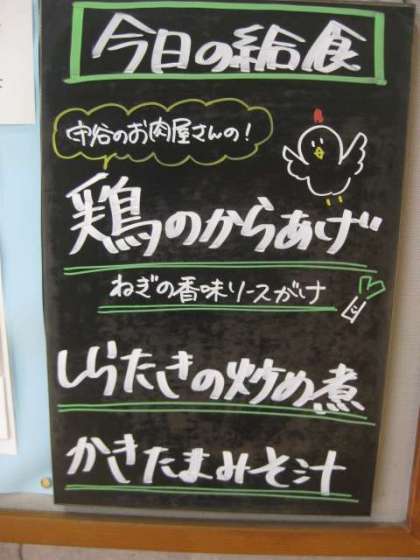 今日の給食
守谷のお肉屋さんの!
鶏のからあげ
ねぎの香味ソースがけ
しらたきの炒め煮
かきたまみそ汁